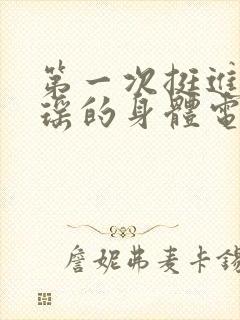 第一次挺進
瑶的身體電
詹妮弗麦卡錫